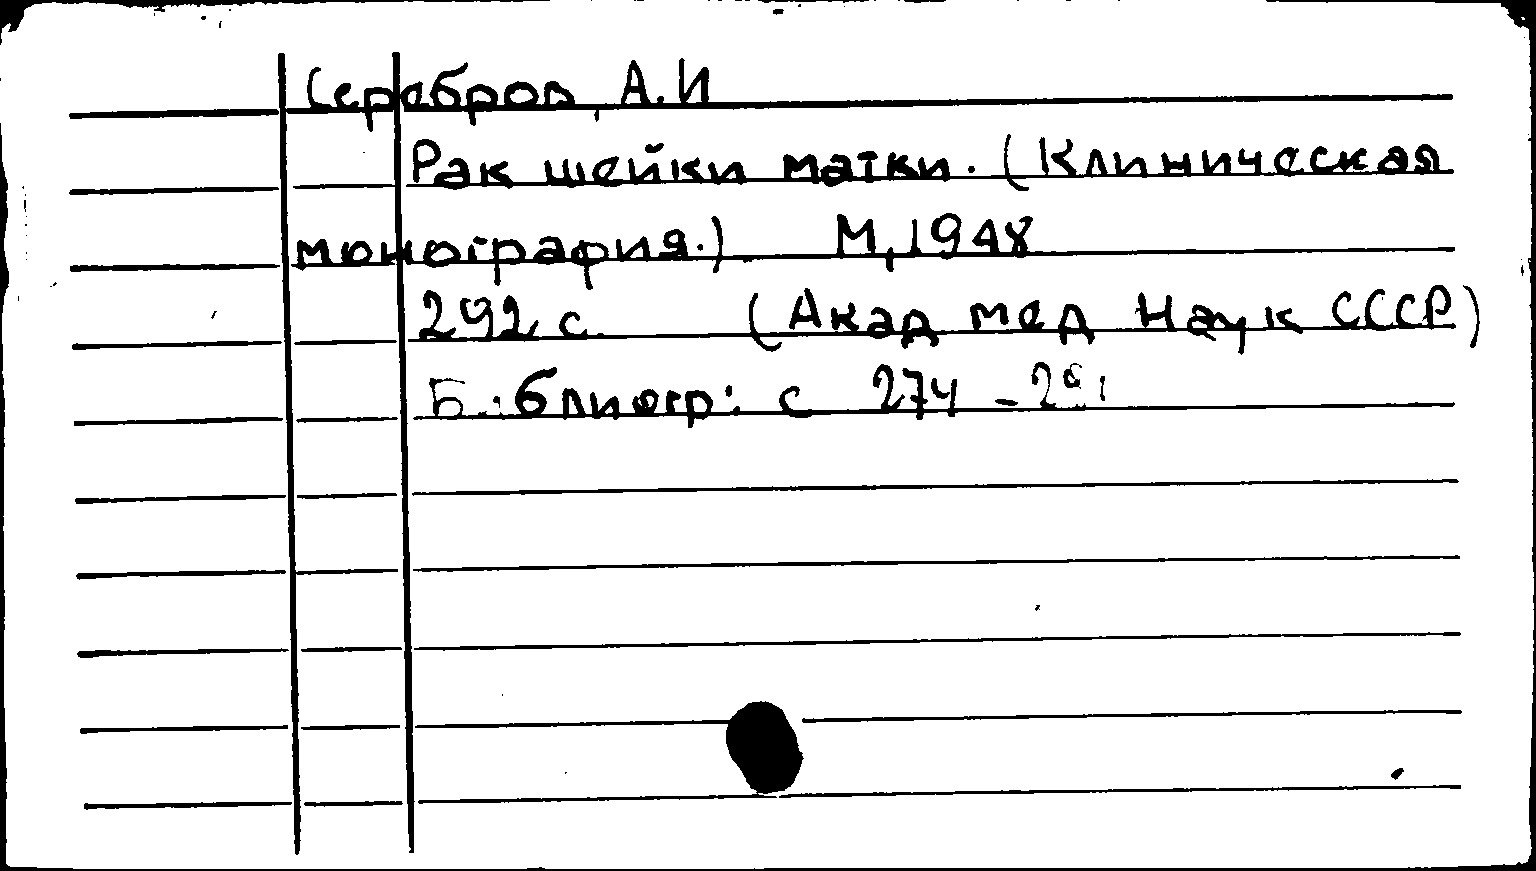 Серебров, А.И
Рак шейки матки. (Клиническая
монография.) М, 1948
292 с. (Акад мед Наук СССР)
Библиогр: с 274 -